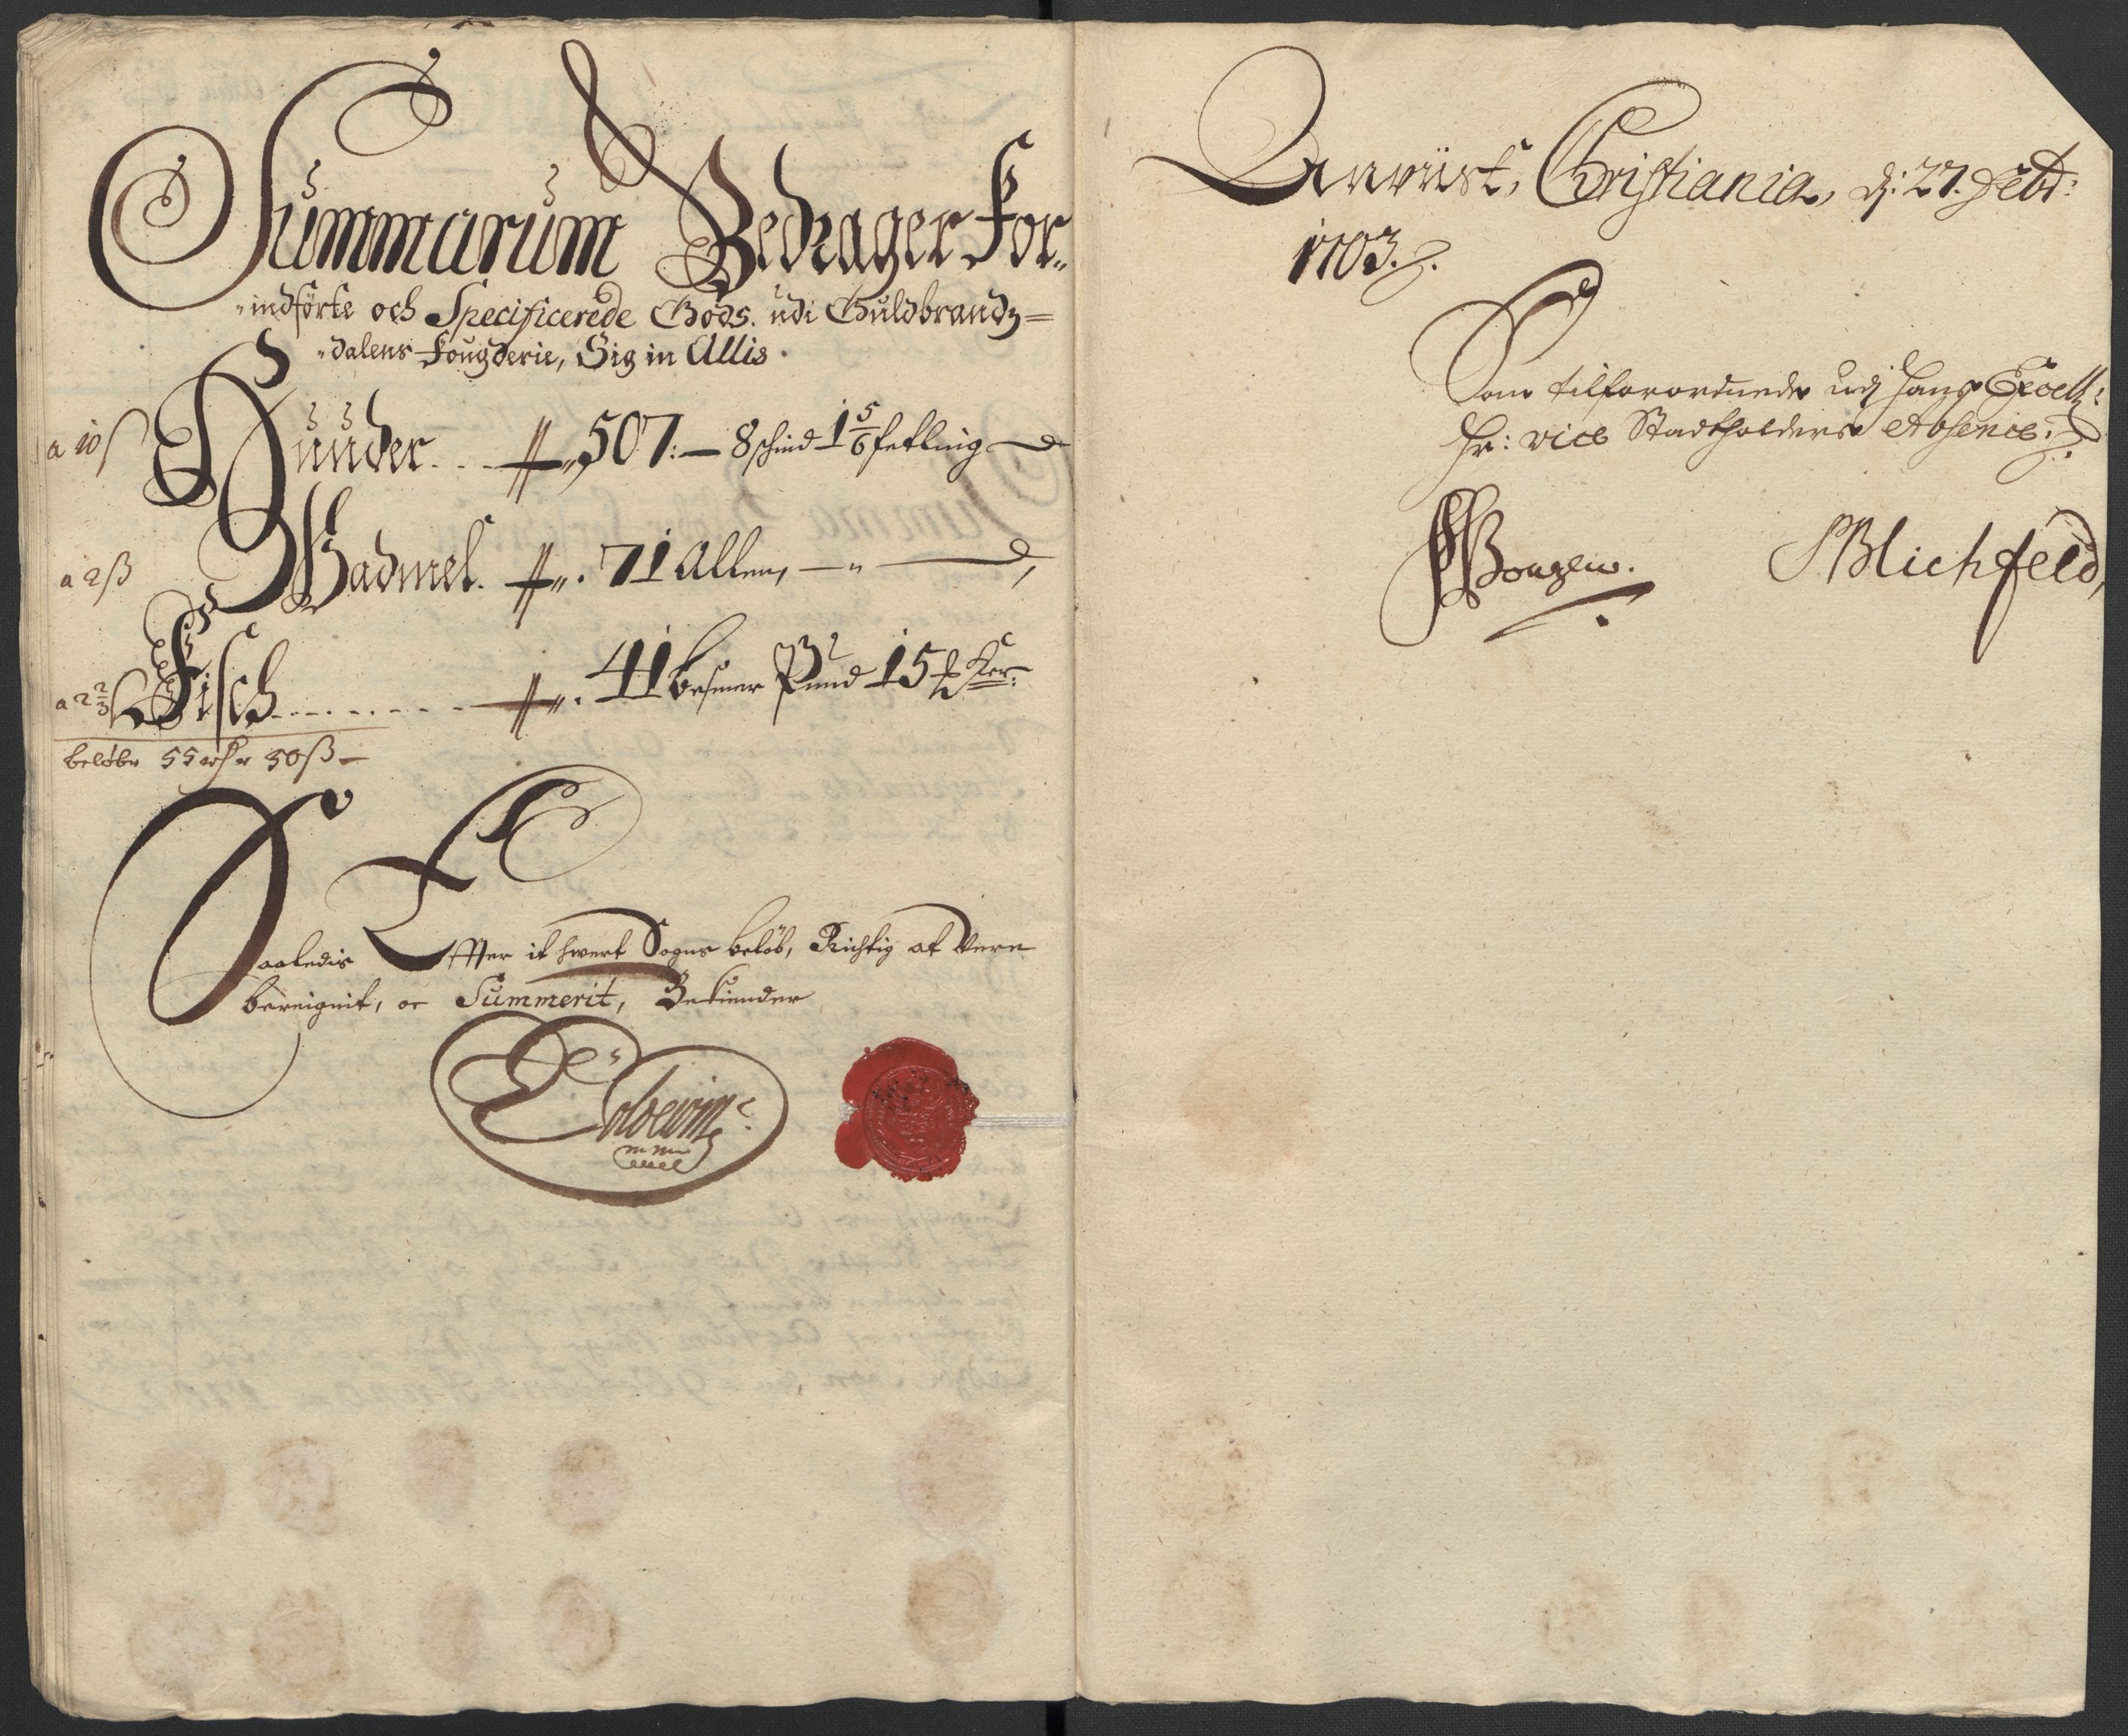 Summarum Bedrager For„
„indförte och Specificerede Gods. udi Guldbrandz=
„dalens Fougderie, Sig in Allis.
a 10 ß Huuder . . . 507: — 8 schind 1 5/6 fetling
a 2 ß Wadmel. 71 Allen,
a 2 2/3 ß Fisch . . . . . . . . . 41 besmer Pund 15 1/2 Ker:
beløbr 55 rdr 50 ß —
Saaledis Effter it hwert Sogns beløb, Richtig at Vere
bereignit, oc Summerit, Bekiender
mmp
Anvüst, Christiania, d: 27. Febr:
1703.
Som tilforordnede udj Hans Excell:
Hr: vice Stadtholders Absence:
Blichfeld,